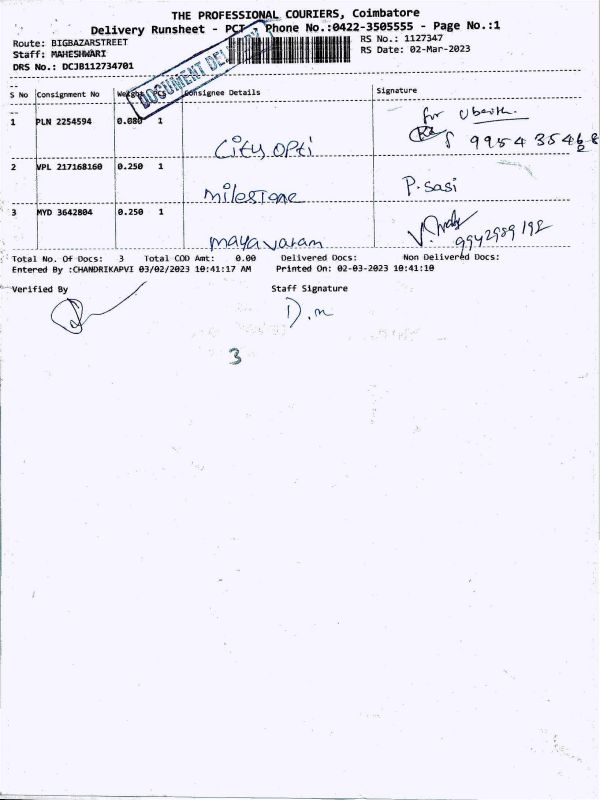 THE PROFESSIONAL COURIERS, Coimbatore
Delivery Runsheet - PCT Phone No.:0422-3505555 - Page No.:1
Route: BIGBAZARSTREET
RS No.: 1127347
Staff: MAHESHWARI
RS Date: 02-Mar-2023
DRS No.: DCJB112734701
DOCUMENT DELIVERY
S No Consignment No Weight PCS Consignee Details Signature
1 PLN 2254594 0.080 1
for
City Opti
2 VPL 217168160 0.250 1
milestone P. sasi
3 MYD 3642804 0.250 1
mayavaram 9942989192
Total No. Of Docs: 3 Total COD Amt: 0.00 Delivered Docs: Non Delivered Docs:
Entered By :CHANDRIKAPVI 03/02/2023 10:41:17 AM Printed On: 02-03-2023 10:41:10
Verified By Staff Signature
3